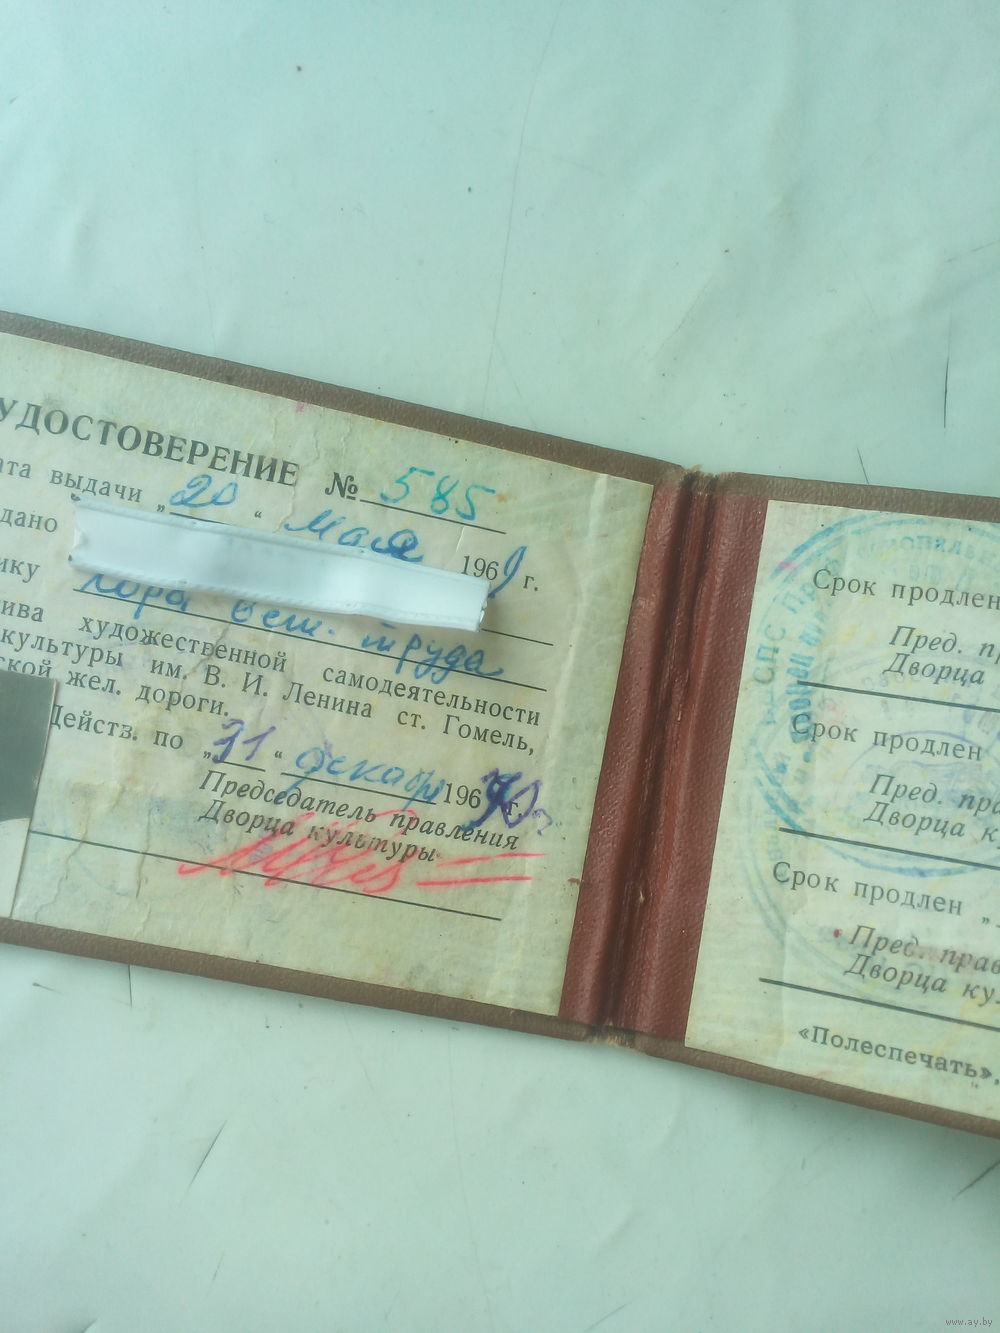 УДОСТОВЕРЕНИЕ № 585
ата выдачи „20“ мая 1969 г.
дано
ику хора вет. труда
ива художественной самодеятельности
культуры им. В. И. Ленина ст. Гомель,
ской жел. дороги.
Действ. по „31“ декабр 1970 г.
Председатель правления
Дворца культуры
Срок продлен
Пред. пр
Дворца
Срок продлен
Пред. пра
Дворца к
Срок продлен „
Пред. прав
Дворца ку
«Полеспечать».
www.ay.by